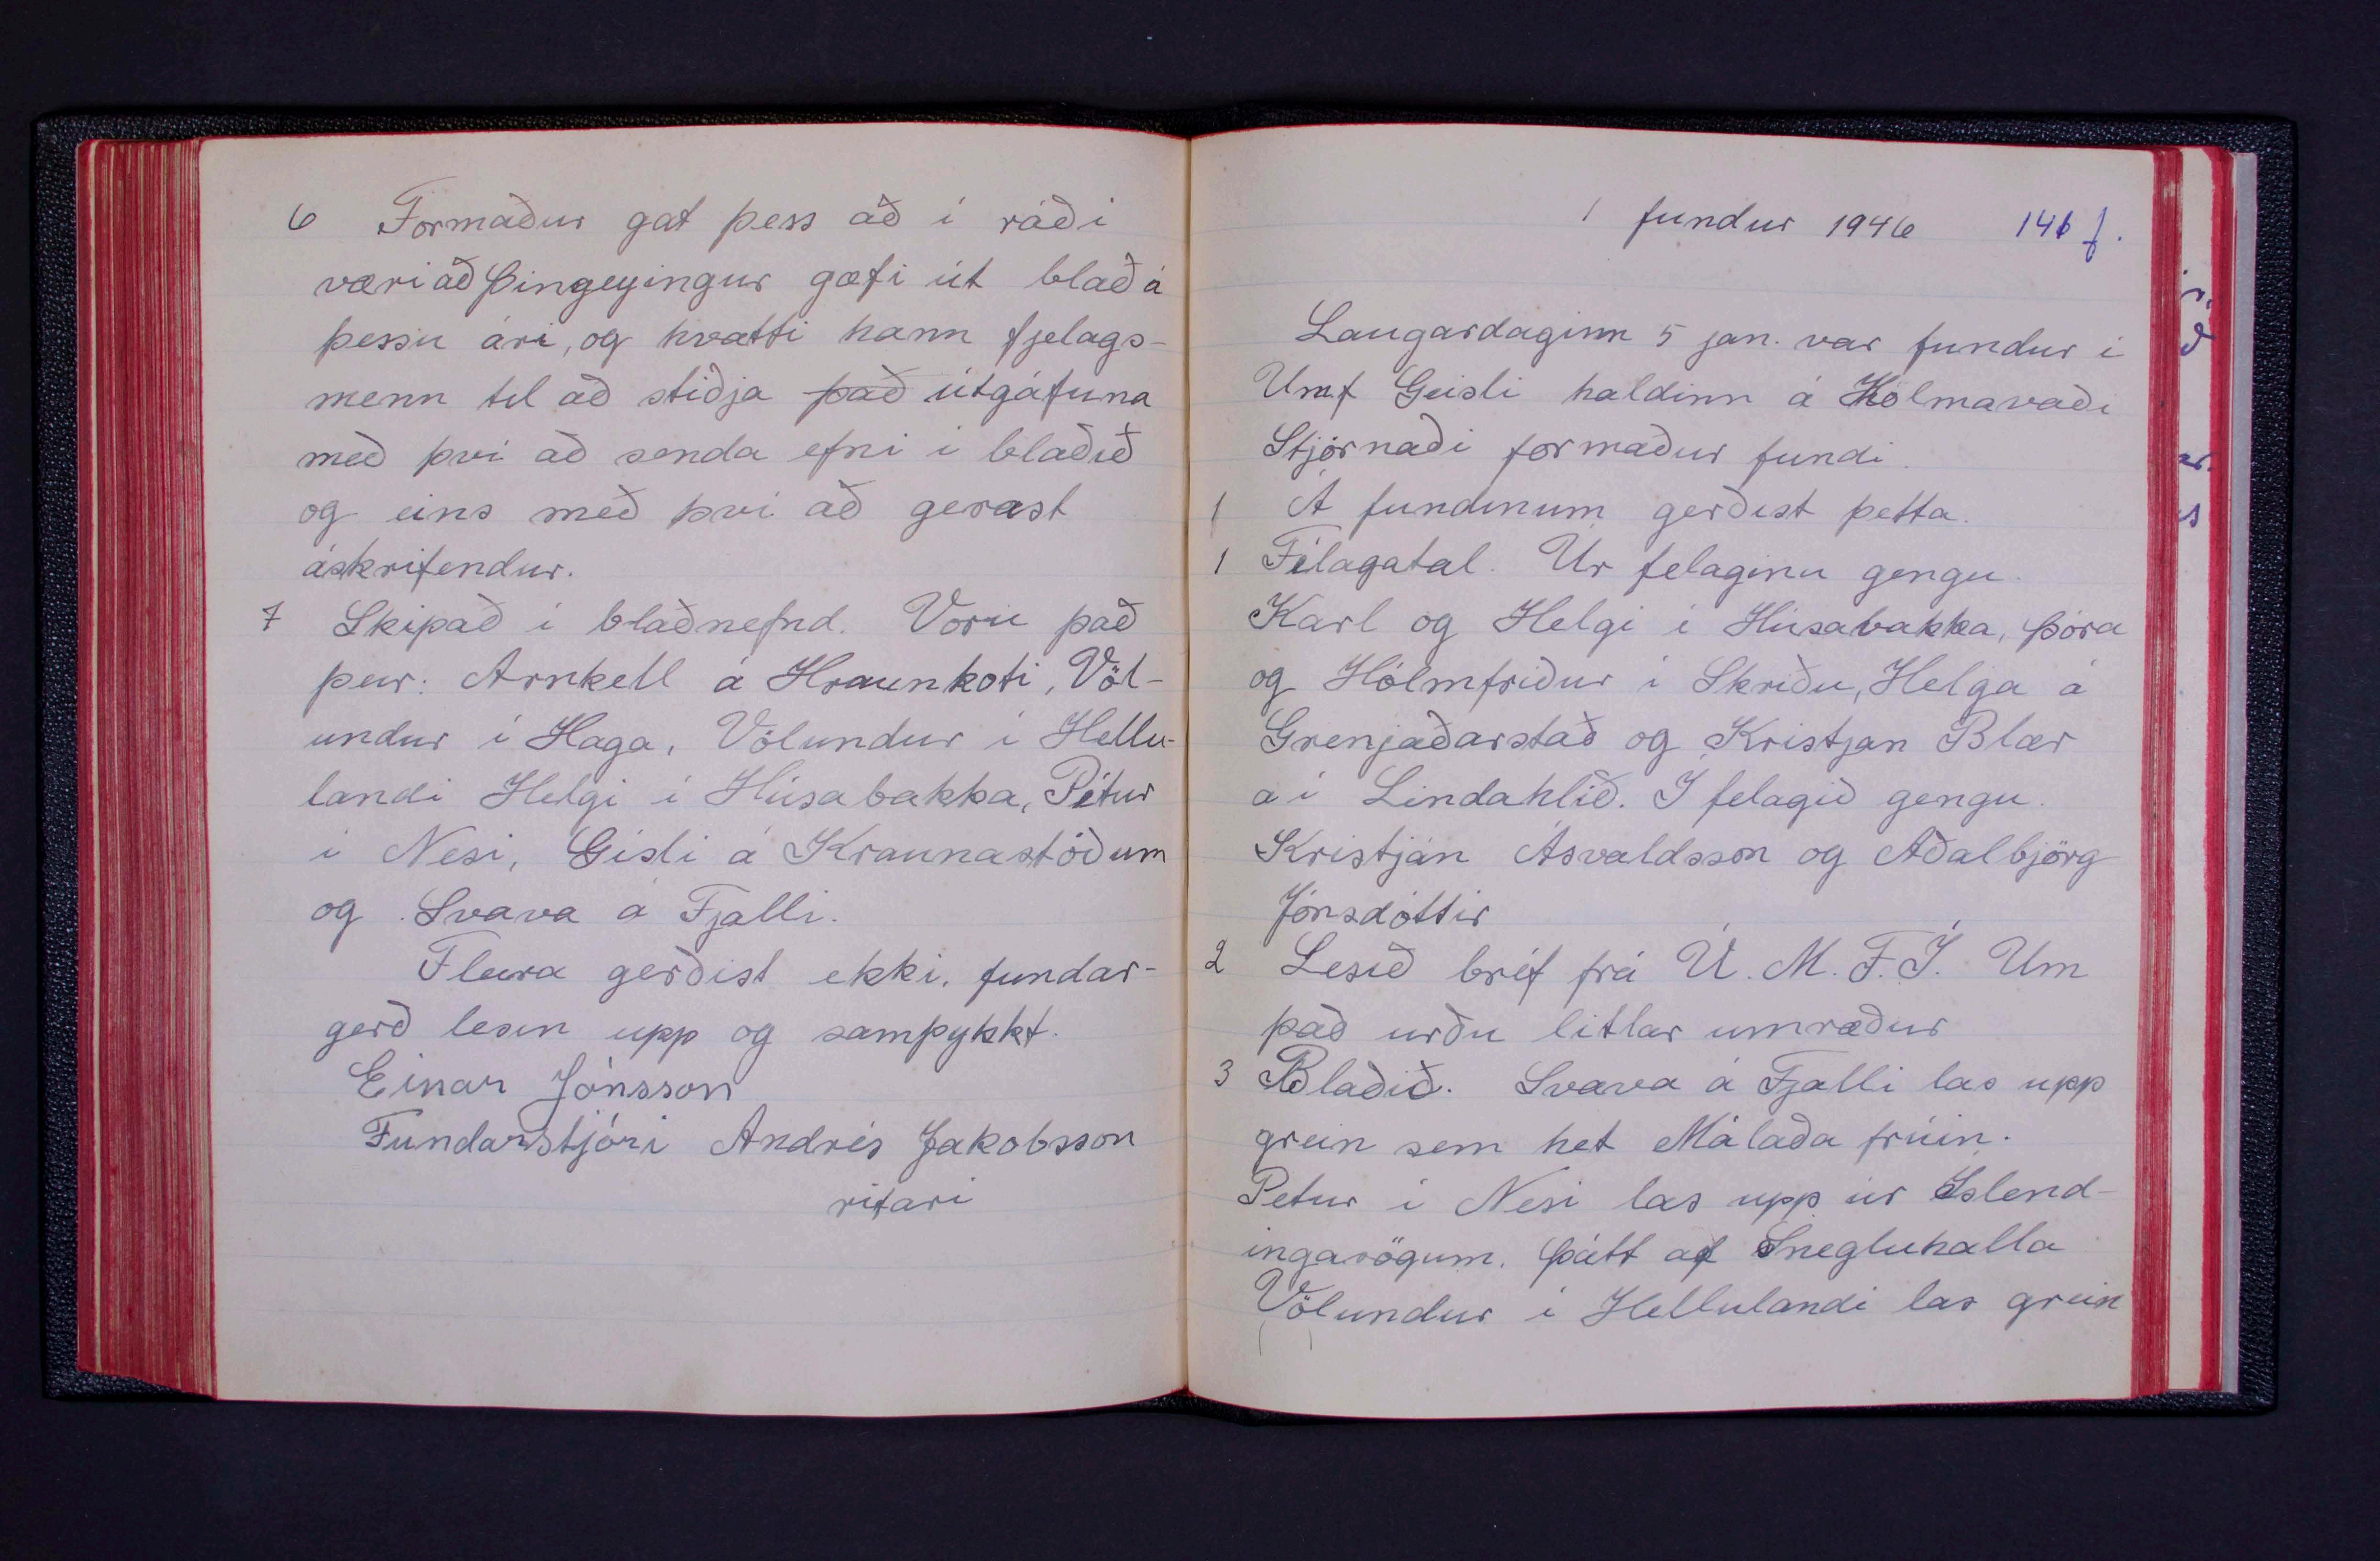 6 Formaður gat þess að í ráði
væri að Þingeyingur gæfi út blað á
þessu ári, og hvatti hann fjelags-
menn til að stiðja það útgáfuna
með því að senda efni í blaðið
og eins með því að gerast
áskrifendur.
7 Skipað í blaðnefnd. Voru það
þeir: Arnkell á Hraunkoti, Völ-
undur í Haga, Völundur í Hellu-
landi Helgi í Húsabakka, Pétur
í Nesi, Gísli á Kraunastöðum
og Svava á Fjalli.
Fleira gerðist ekki, fundar-
gerð lesin upp og samþykkt.
Einar Jónsson
Fundarstjóri Andrés Jakobsson
ritari
1 fundur 1946 146 f.
Laugardaginn 5 jan. var fundur í
Umf Geisli haldinn á Hólmavaði
Stjórnaði formaður fundi.
1 Á fundinum gerðist þetta.
1 Félagatal. Úr felaginu gengu.
Karl og Helgi í Húsabakka, Þóra
og Hólmfríður í Skriðu, Helga á
Grenjaðarstað og Kristjan Blær
á í Lindahlíð. Í felagið gengu.
Kristján Ásvaldsson og Aðalbjörg
Jónsdóttir
2 Lesið bréf frá U. M. F. Í. Um
það urðu litlar umræður
3 Blaðið. Svava á Fjalli las upp
grein sem het Málaða frúin.
Petur í Nesi las upp úr Íslend-
ingasögum. Þátt af Snegluhalla
Völundur í Hellulandi las grein